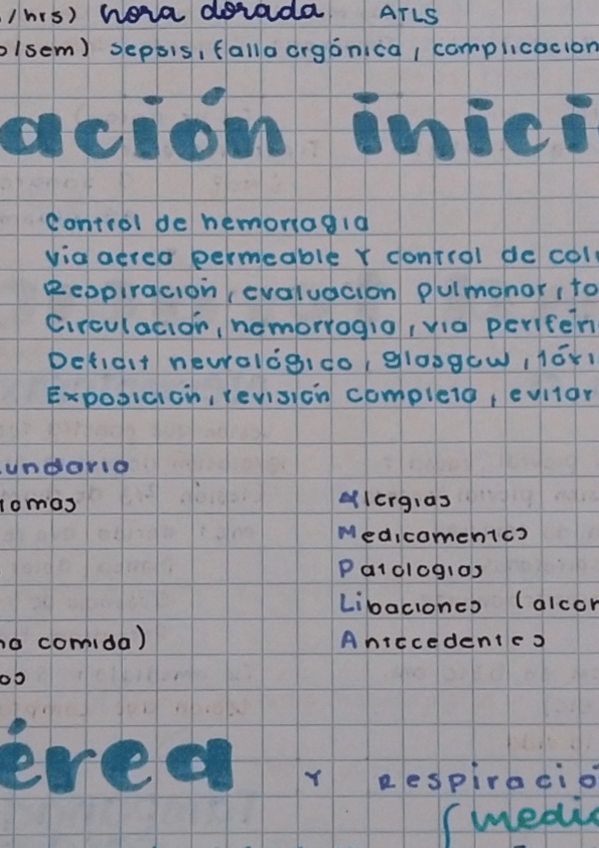 /hrs) hora dorada ATLS
o/sem) sepsis, falla orgánica, complicacion
ación inici
Control de hemorragia
Via aerea permeable Y control de col
Respiración, evaluación pulmonar, to
Circulación, hemorragia, via perifer
Deficit neurológico, glasgow, tóxi
Exposición, revisión completa, evitar
undario
tomas Alergias
Medicamentos
Patologias
Libaciones (alcoh
na comida) Antecedentes
os
érea Y Respiració
(medic